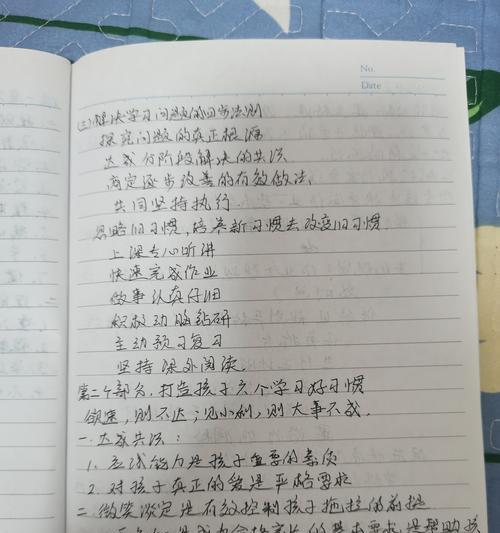 No.
Date
(三)解决学习问题的四步法则
探究问题的真正根源
达成分阶段解决的共识
商定逐步改善的有效做法
共同坚持执行.
忽略旧习惯,培养新习惯去改变旧习惯.
上课专心听讲
快速完成作业
做事认真仔细
积极动脑钻研
主动预习复习
坚持课外阅读.
第二个部分,打造孩子六个学习好习惯
欲速,则不达;见小利,则大事不成.
一.达成共识:
1.应试能力是孩子重要的素质
2.对孩子真正的爱是严格要求
二.微笑淡定是有效控制孩子拖拉的前提